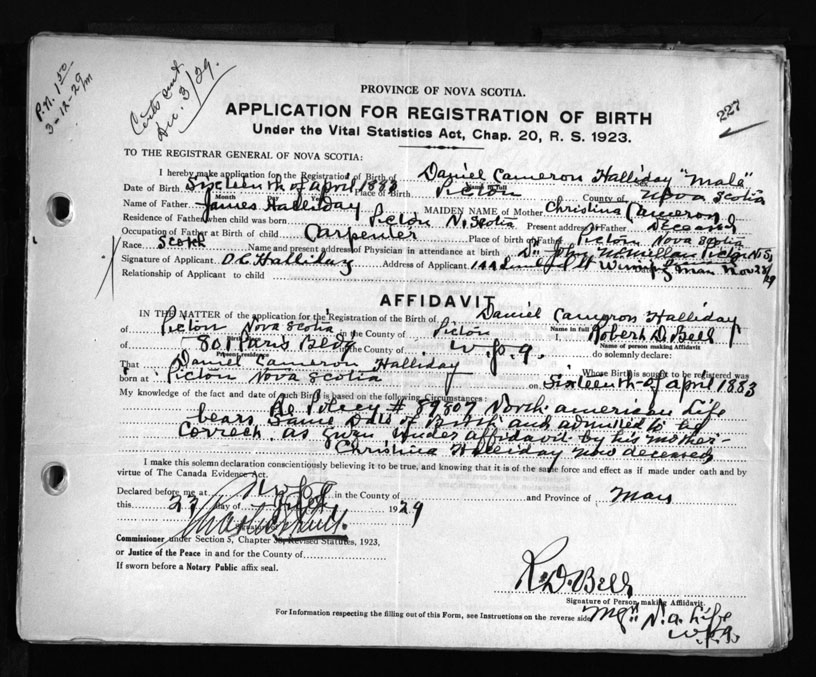 P.N. 1.50
3-12-29
Certs sent
Dec. 3/29.
227
PROVINCE OF NOVA SCOTIA.
APPLICATION FOR REGISTRATION OF BIRTH
Under the Vital Statistics Act, Chap. 20, R. S. 1923.
TO THE REGISTRAR GENERAL OF NOVA SCOTIA:
I hereby make application for the Registration of Birth of Daniel Cameron Halliday "Male"
Name in full Sex
Date of Birth Sixteenth of April 1883 Place of Birth Pictou County of Nova Scotia
Month Day Year
Name of Father James Halliday MAIDEN NAME of Mother Christina Cameron
Residence of Father when child was born Pictou N. Scotia Present address of Father Deceased
Occupation of Father at birth of child Carpenter Place of birth of Father Pictou Nova Scotia
Race Scotch Name and present address of Physician in attendance at birth Dr John McMillan Pictou N.S.
Signature of Applicant D C Halliday Address of Applicant 144 St Winnipeg Man Nov 23/29
Relationship of Applicant to child
AFFIDAVIT
IN THE MATTER of the application for the Registration of the Birth of Daniel Cameron Halliday
Name in full
of Pictou Nova Scotia in the County of Pictou I, Robert D. Bell
Birthplace Name of person making Affidavit
of 801 Paris Bldg in the County of Wpg. do solemnly declare:
Present residence
That Daniel Cameron Halliday Whose Birth is sought to be registered was
born at Pictou Nova Scotia on Sixteenth of April 1883
My knowledge of the fact and date of such Birth is based on the following Circumstances:
Re Policy # 89807 North American Life
bears same date of Birth and admitted to be
correct as given under affidavit by his mother-
Christina Halliday now deceased
I make this solemn declaration conscientiously believing it to be true, and knowing that it is of the same force and effect as if made under oath and by
virtue of The Canada Evidence Act.
Declared before me at Wpg in the County of and Province of Man
this 23 day of 1929
Commissioner under Section 5, Chapter 38, Revised Statutes, 1923,
or Justice of the Peace in and for the County of
If sworn before a Notary Public affix seal.
R. D. Bell
Signature of Person making Affidavit.
For Information respecting the filling out of this Form, see Instructions on the reverse side
Mgr N. A. Life
Wpg.